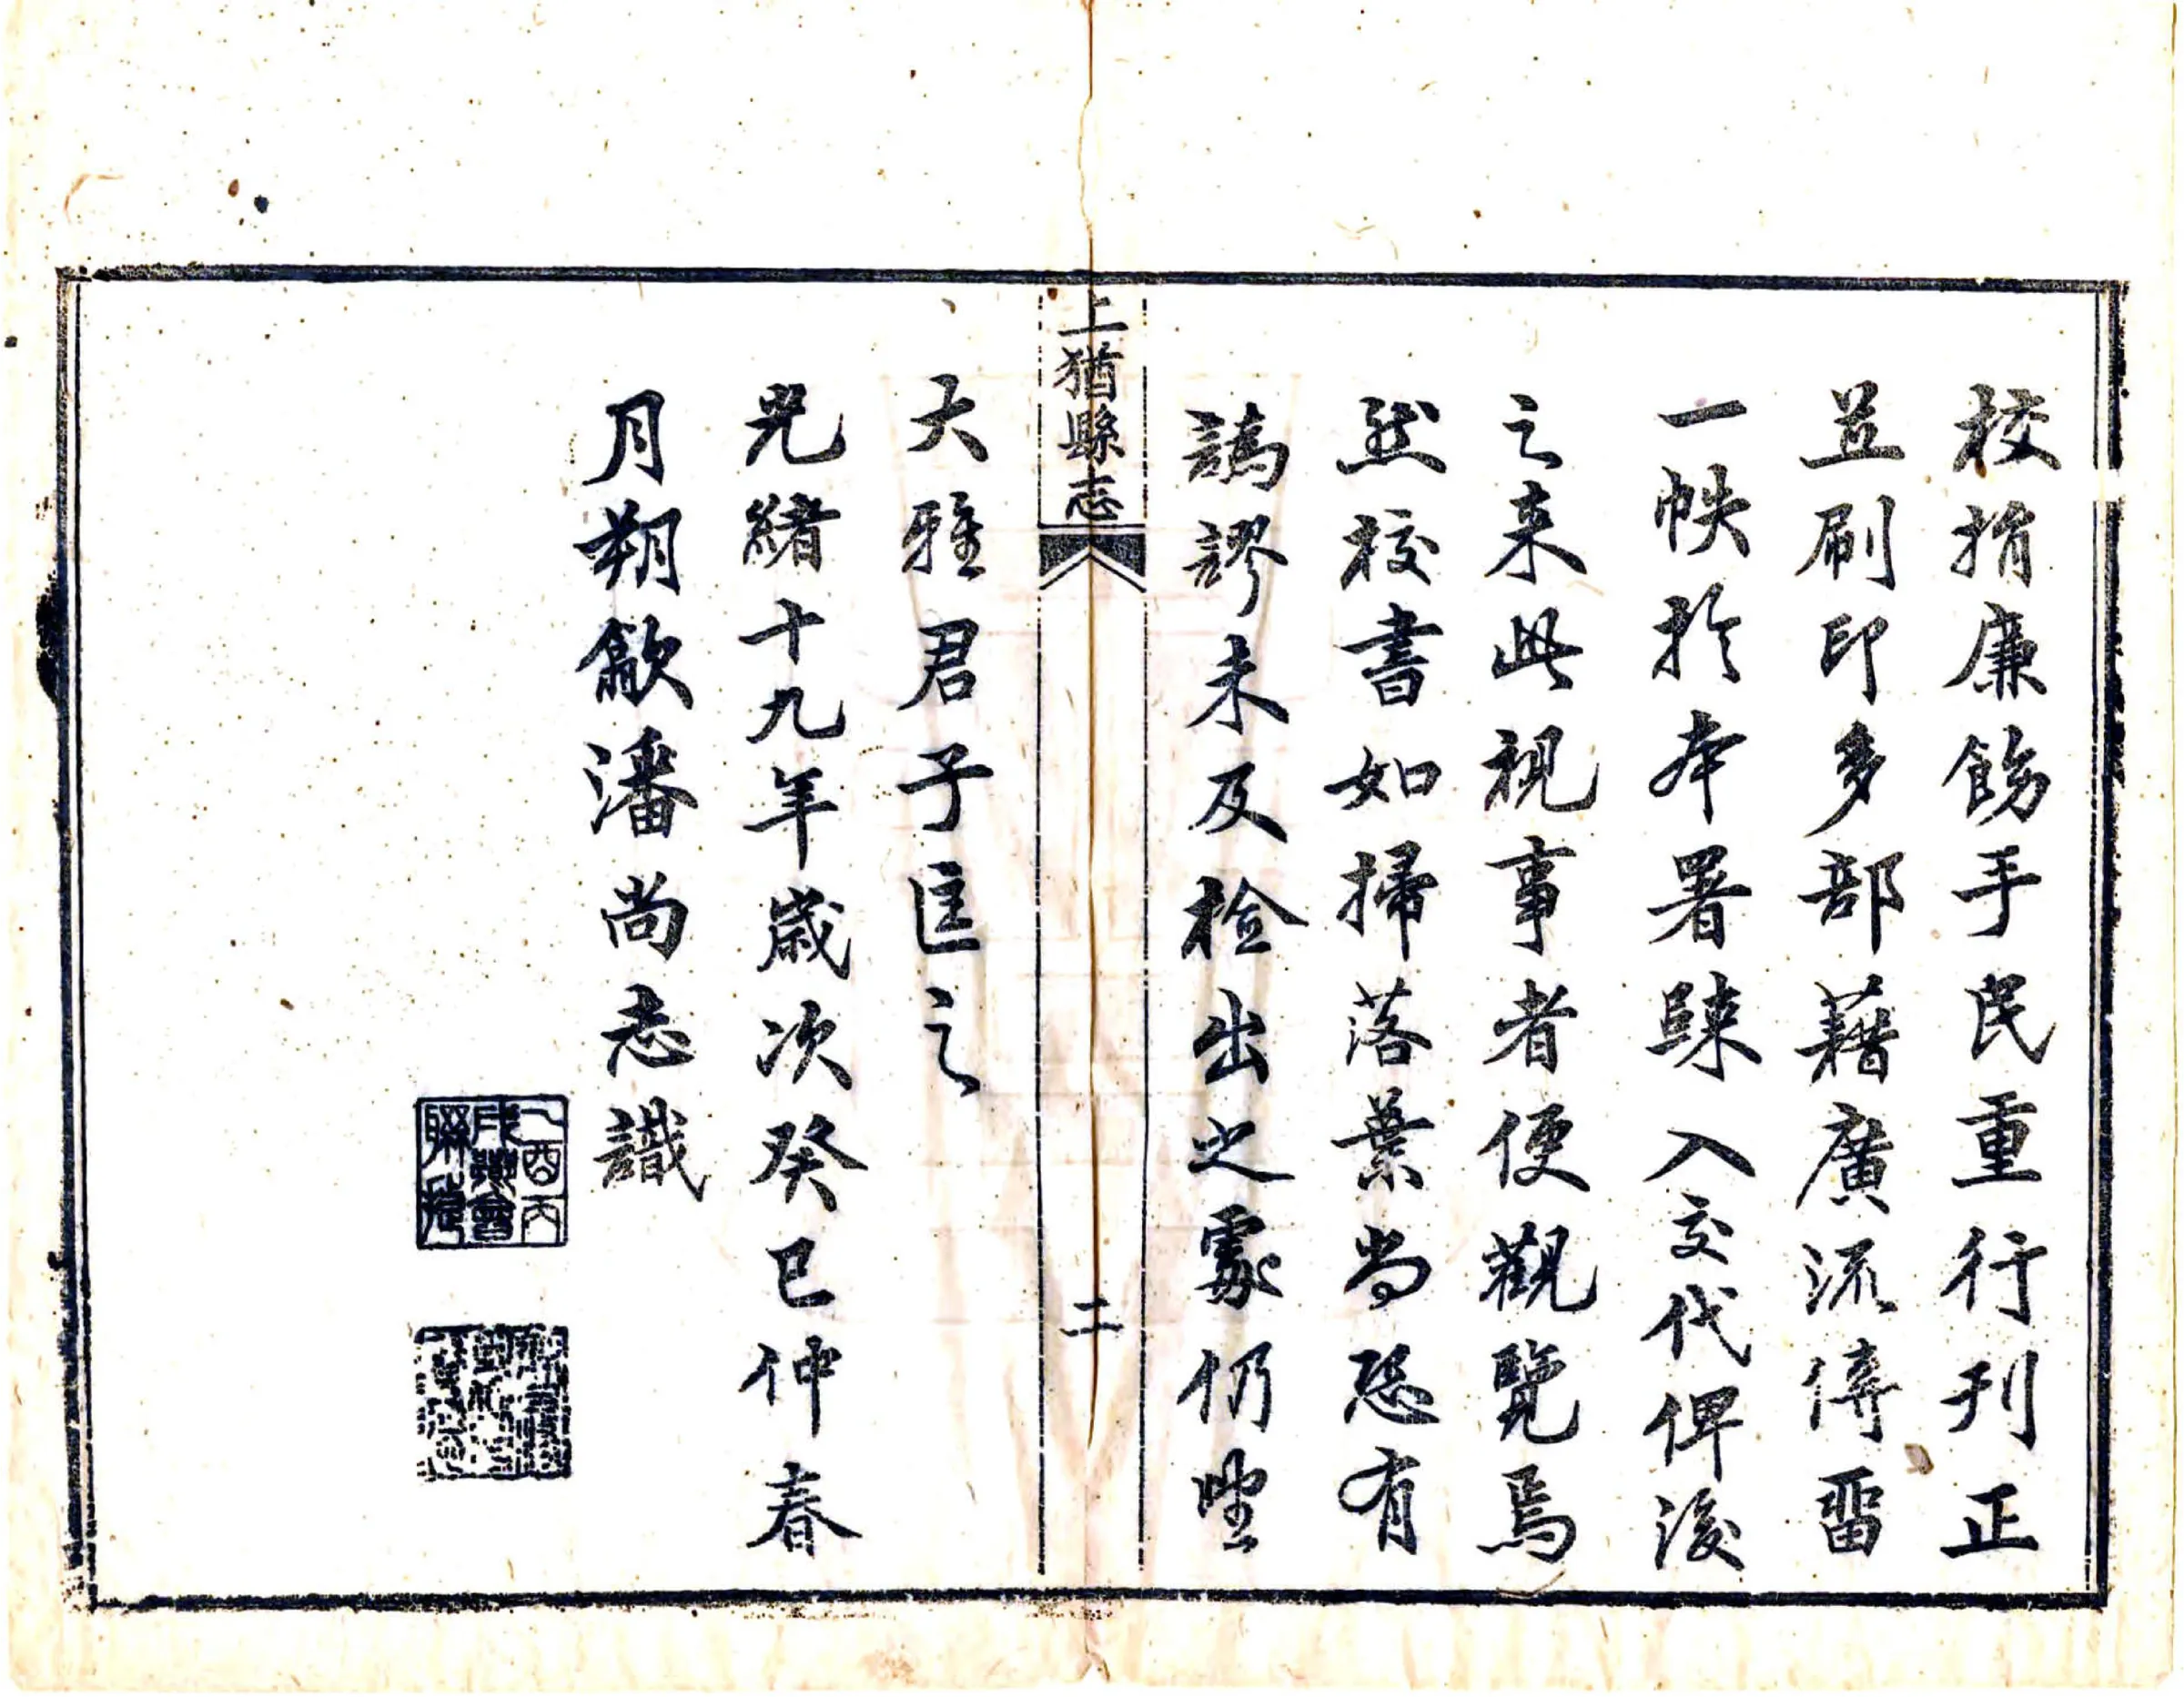 校捐廉飭手民重行刋正
並刷印多部藉廣流傳畱
一帙於本署隸入交代俾後
之来此視事者便觀覽焉
然校書如掃落葉尚恐有
譌謬未及檢出之處仍望
上猶縣志
二
大雅君子匡之
光緒十九年歲次癸巳仲春
月朔歙潘尚志識
乙酉丙
戌
會
聯捷